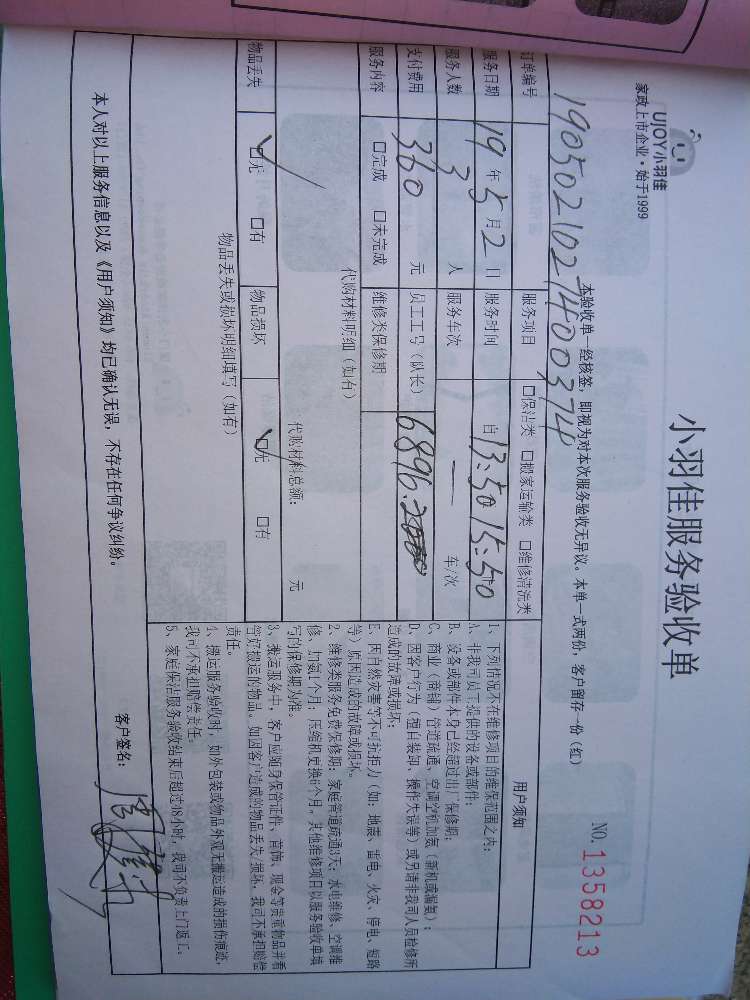 UJOY小羽佳
家政上市企业·始于1999
小羽佳服务验收单
NO.1358213
本验收单一经核签，即视为对本次服务验收无异议。本单一式两份，客户留存一份（红）
订单编号 190502102740037​4
服务项目 □保洁类 □搬家运输类 □维修清洗类
服务日期 19年5月2日
服务时间 自13:50 15:50
服务人数 3人
服务车次 — 车/次
支付费用 360元
员工工号（队长） 6896.
服务内容 □完成 □未完成
维修类保修期
代购材料明细（如有）
代购材料总额： 元
物品丢失 ☑无 □有
物品损坏 ☑无 □有
物品丢失或损坏明细填写（如有）
用户须知
1、下列情况不在维修项目的维保范围之内：
A、非我司员工提供的设备或部件；
B、设备或部件本身已经超过出厂保修期；
C、商业（商铺）管道疏通、空调空机加氨（新机或漏氨）；
D、因客户行为（擅自装卸、操作失误等）或另请非我司人员检修所
造成的故障或损坏；
E、因自然灾害等不可抗拒力（如：地震、雷电、火灾、停电、短路
等）原因造成的故障或损坏。
2、维修类服务免费保修期：家庭管道疏通3天；水电维修、空调维
修、加氨1个月；压缩机更换6个月。其他维修项目以服务验收单填
写的保修期为准。
3、搬运服务中，客户应随身保管证件、首饰、现金等贵重物品并看
管好搬运的物品。如因客户造成的物品丢失/损坏，我司不承担赔偿
责任。
4、搬运服务验收时，如外包装或物品外观无搬运造成的损伤痕迹，
我司不承担赔偿责任。
5、家庭保洁服务验收结束后超过48小时，我司不负责上门返工。
本人对以上服务信息以及《用户须知》均已确认无误，不存在任何争议纠纷。
客户签名：